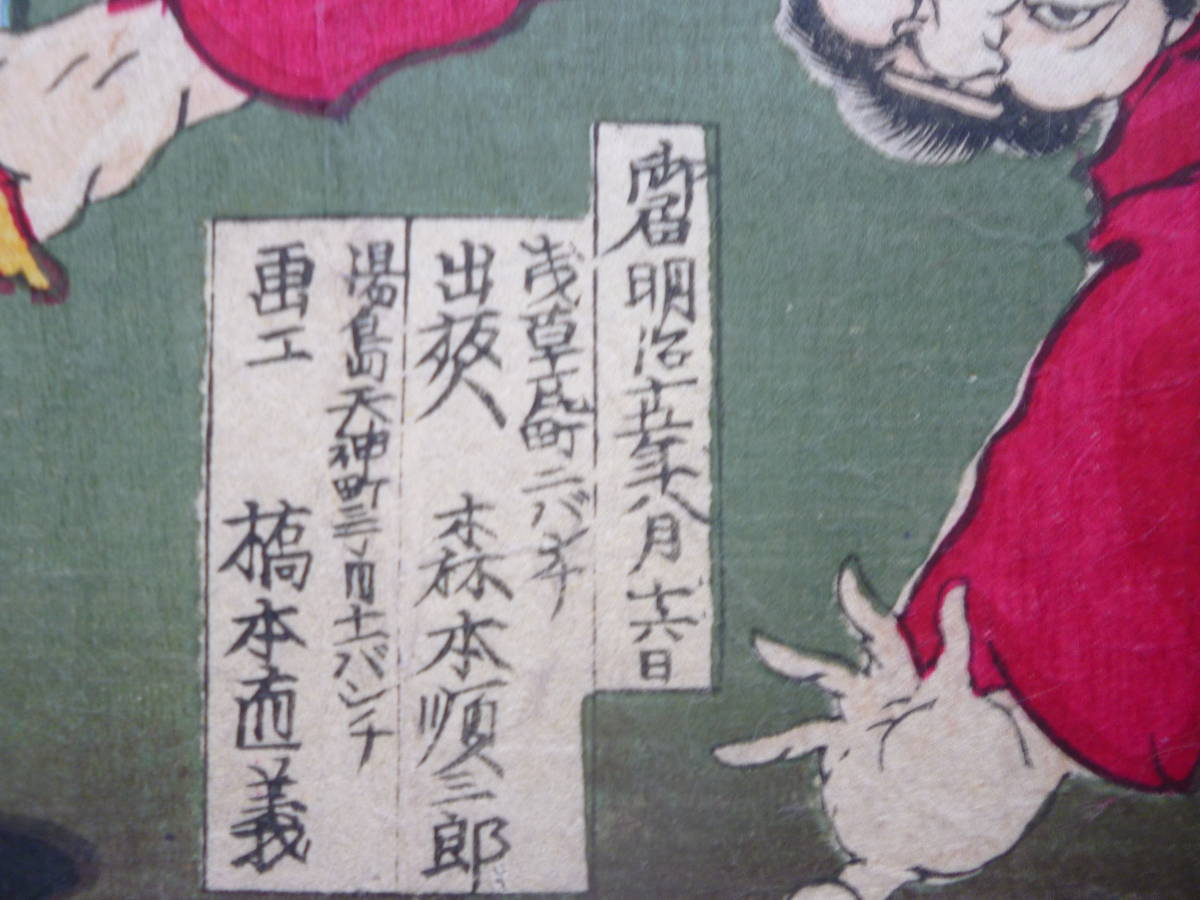 御届明治十五年八月十六日
浅草瓦町二バンチ
出版人 森本順三郎
湯島天神町三丁目十二バンチ
画工 橋本直義